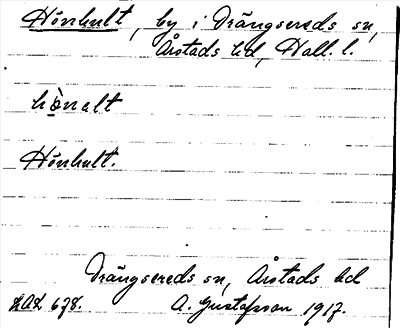 Hönhult, by i Drängsereds sn,
Årstads hd, Hall. l.
hònalt
Hönhult.
Drängsereds sn, Årstads hd
LAL 678. A. Gustafsson 1917.